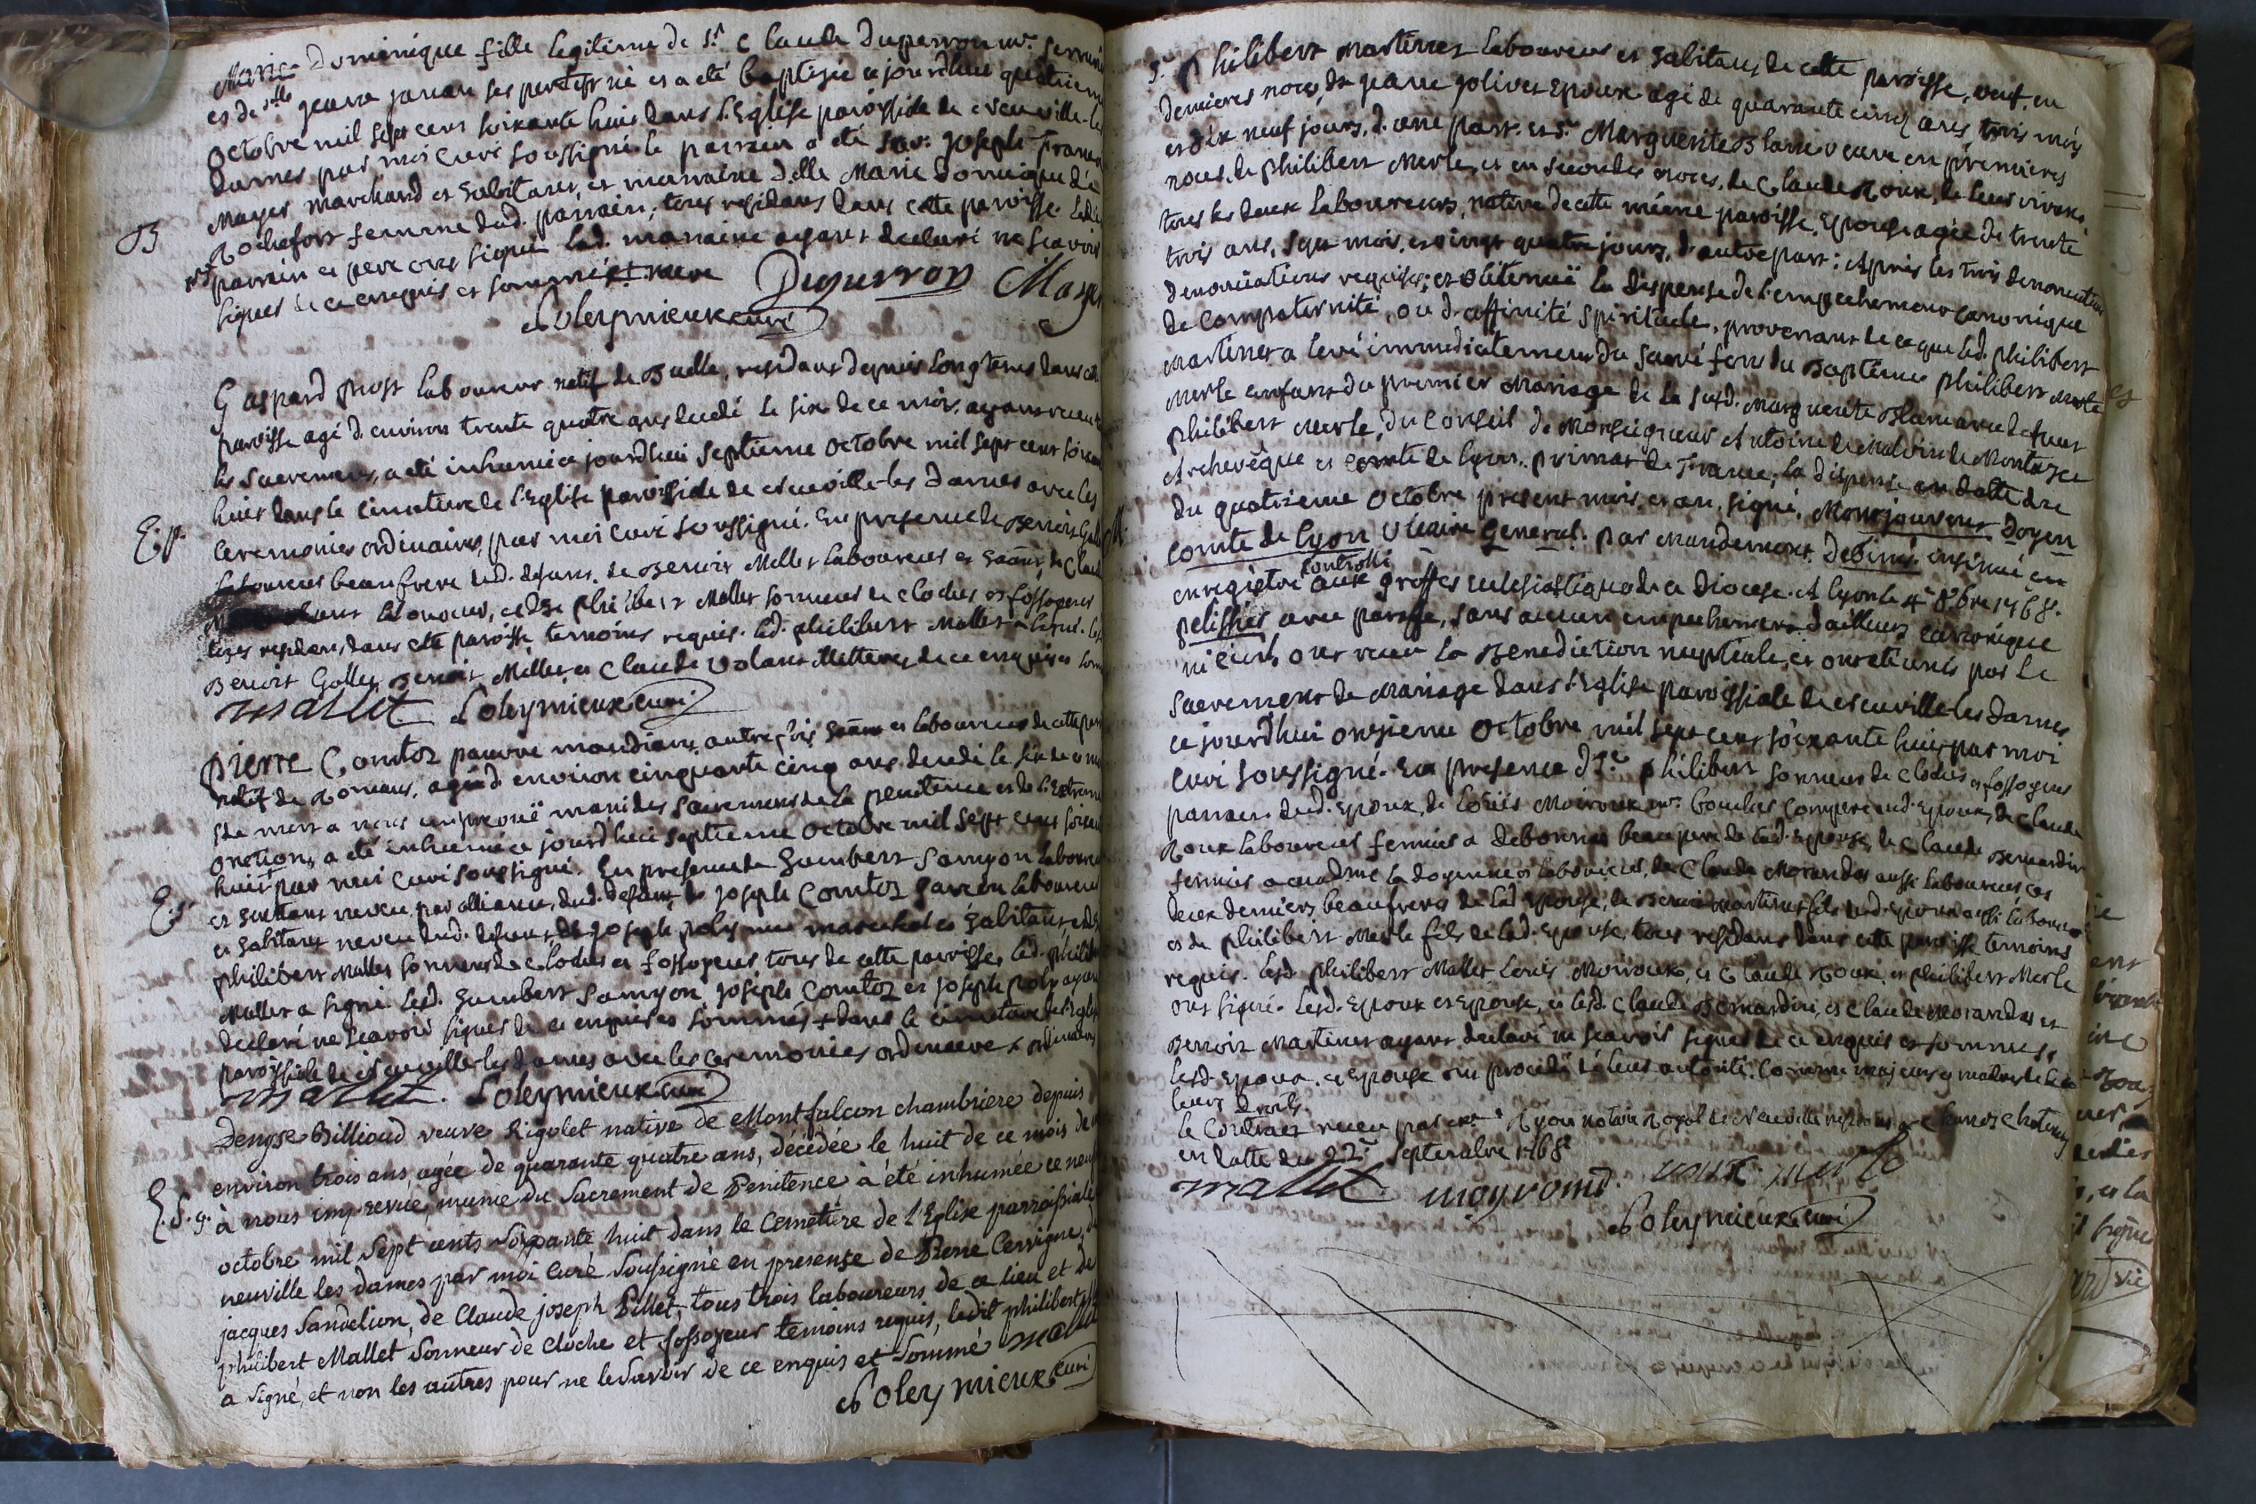 Marie Dominique fille legitime de Sr. Claude Duperron me.
et de delle jeane janan ses pere né et a été baptisée ce jourdhui quatrieme
Octobre mil sept cent soixante huit dans l'Eglise paroissiale de neuville les
dames par moi curé soussigné. le parrain a été Joseph
Mayer marchand et habitant, et marraine d.elle Marie Dominique de
Rochefort femme dud. parrain, tous residans dans cette paroisse.
B
parrain et pere ont signé lad. marraine ayant declaré ne scavoir
signer de ce enquis et sommée
Duperron Mayer
Soleymieux curé
Gaspard prost laboureur natif de Buelle, residant depuis longtems dans
paroisse agé d'environ trente quatre ans decedé le six de ce mois, ayant receu
les sacremens, a été inhumé ce jourdhui septieme octobre mil sept cent
huit dans le cimetiere de l'Eglise paroissiale de neuville les Dames avec les
E.p.
ceremonies ordinaires, par moi curé soussigné. En presence de Benoit
laboureur beaufrere dud. defunt, de Benoit Millet laboureur et de
laboureur, et de philibert Mallet sonneur de cloches et fossoyeur
tous residans dans cette paroisse temoins requis. led. philibert Mallet a signé.
Benoit Gallet Benoit Millet, et Claude Volant illetterés de ce enquis et
mallet Soleymieux curé
pierre Comtoz pauvre mandiant autrefois et laboureur de cette
natif de Romans, agé d'environ cinquante cinq ans decedé le six de ce
de mort a nous imprevuë muni des sacremens de la penitence et de l'Extreme
onction, a été inhumé ce jourdhui septieme octobre mil sept cent
huit par moi curé soussigné. En presence de humbert Samyon laboureur
E.s.
et habitant neveu par alliance dud. defunt de joseph Comtoz garçon laboureur
et habitant neveu dud. defunt de joseph poly marechal et habitant, et de
philibert Mallet sonneur de cloches et fossoyeur tous de cette paroisse. led. philibert
Mallet a signé. Lesd. humbert Samyon, joseph Comtoz et joseph poly ayant
declaré ne scavoir signer de ce enquis et sommés + dans le cimetiere de l'Eglise
paroissiale de neuville les dames avec les ceremonies ordinaires
mallet. Soleymieux curé
Denyse Billioud veuve Rigolet native de Montfalcon chambrière depuis
environ trois ans agée de quarante quatre ans, décédée le huit de ce mois de
à nous imprevue, munie du Sacrement de Penitence à été inhumée ce neuf
E.S.g.
octobre mil sept cents soixante huit dans le Cemetière de l'Eglise parroissiale
neuville les dames par moi Curé Soussigné en presense de Pierre Cerrigne, de
jacques Sandelion, de Claude joseph Pillet tous trois laboureurs de ce lieu et de
philibert Mallet Sonneur de cloche et fossoyeur temoins requis, ledit philibert
a signé, et non les autres pour ne le Savoir de ce enquis et Sommé mallet
Soleymieux curé
Sr. Philibert Martinet laboureur et habitant de cette paroisse, veuf en
dernieres noces de jeane jolivet epoux agé de quarante cinq ans trois mois
et dix neuf jours, d'une part. et Se. Marguerite Blanc veuve en premieres
noces de philibert Merle, et en secondes noces, de Claude Roux, de leur vivant
tous les deux laboureurs, native de cette même paroisse, Epouse agée de trente
trois ans, sept mois, et vingt quatre jours, d'autre part: Après les trois denonciations
denonciations requises, et obtenuë la dispense de l'empechement canonique
de compaternité, ou d'affinité spirituele, provenant de ce que led. philibert
Martinet a levé immediatement du sacré fons du Baptême philibert Merle
Merle enfant du premier Mariage de la susd. Marguerite Blanc avec defunt
philibert Merle, du Conseil de Monseigneur Antoine de Malvin de Montazet
Archevêque et comte de lyon, primat de France, la dispense en datte dre
du quatrieme Octobre present mois et an, signé, Montjouvent Doyen
comte de lyon Vicaire General. par Mandement. insinué en
controllé
enregistré aux greffes eclesiastiques de ce Diocese. A lyon le 4e 8bre 1768.
pelissier avec paraffe, sans aucun empechement d'ailleurs canonique
ni civil ont receu la Benediction nuptiale, et ont été unis par le
sacrement de Mariage dans l'Eglise paroissiale de neuville les Dames
ce jourdhui onzieme Octobre mil sept cent soixante huit par moi
curé soussigné. En presence de philibert sonneur de Cloches et fossoyeur
parrain dud. Epoux, de loüis Moiroux me. boucher compere aud. Epoux, de Claude
Roux laboureur fermier a beaupere de lad. Epouse, de Claude Bernardin
fermier laboureur, de Claude Morandas aussi laboureur ces
deux derniers beaufreres de lad. Epouse, de Benoit Martinet fils dud. Epoux aussi laboureur
et de philibert Merle fils de lad. Epouse, tous residans dans cette paroisse temoins
requis. lesd. philibert Mallet Louis Moiroux, et Claude Roux, et philibert Merle
ont signé. Lesd. Epoux et Epouse, et lesd. Claude Bernardin, et Claude Morandas et
Benoit Martinet ayant declaré ne scavoir signer de ce enquis et sommés,
lesd. Epoux et Epouse ont procedé de leur autorité, comme majeurs et maitres de
leurs droits.
le Contract receu par me. Ryon notaire Royal de neuville
en datte du 22e Septembre 1768
mallet moyroud. roux merle
Soleymieux curé